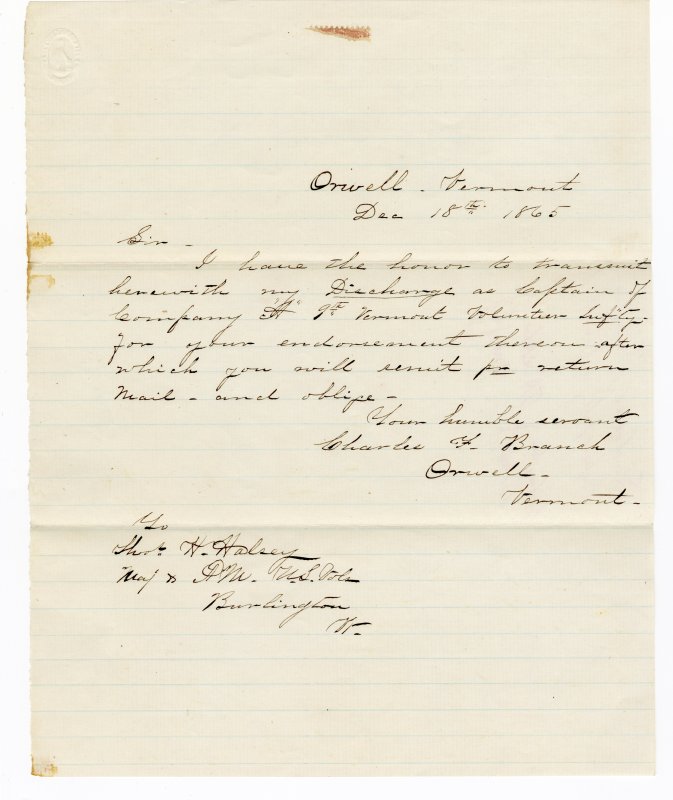 Orwell - Vermont
Dec 18th 1865
Sir -
I have the honor to transmit
herewith my Discharge as Captain of
Company "A" 9th Vermont Volunteer Infty-
for your endorsement thereon after
which you will remit pr return
Mail - and oblige -
Your humble servant
Charles F. Branch
Orwell -
Vermont -
To
Thos. H. Halsey
Maj & P.M. U.S. Vols
Burlington
Vt.